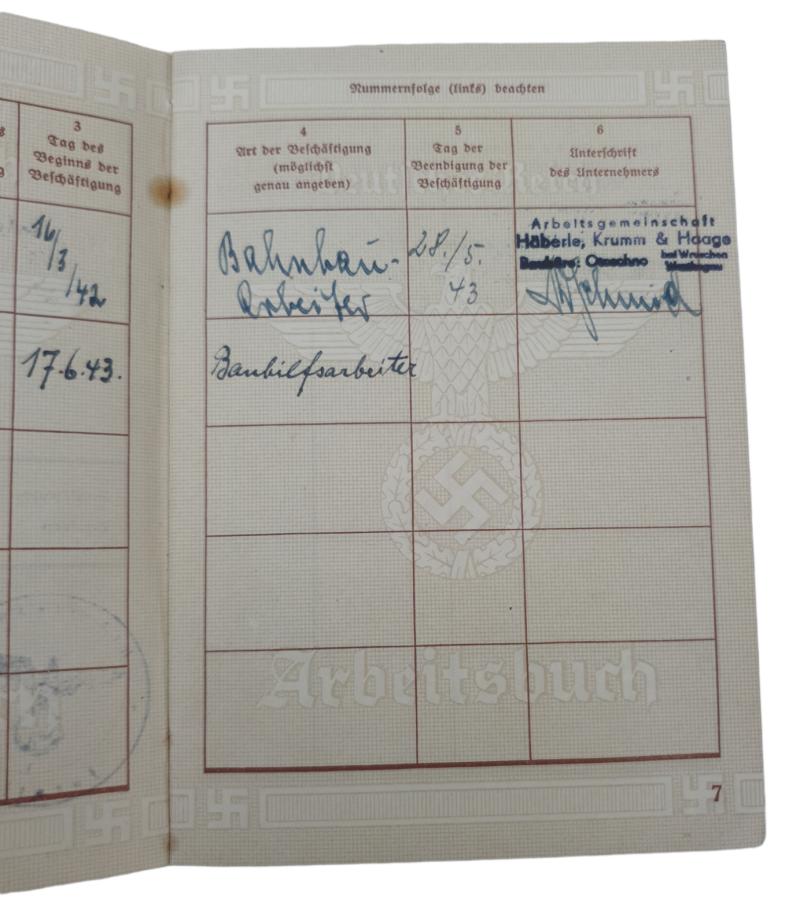 Nummernfolge (links) beachten
3
Tag des
Beginns der
Beschäftigung
4
Art der Beschäftigung
(möglichst
genau angeben)
5
Tag der
Beendigung der
Beschäftigung
6
Unterschrift
des Unternehmers
16/3/42
Bahnbau-
Arbeiter
28./5.
43
Arbeitsgemeinschaft
Häberle, Krumm & Haage
bei Wreschen
Schmid
17.6.43.
Bauhilfsarbeiter
Deutsches Reich
Arbeitsbuch
7